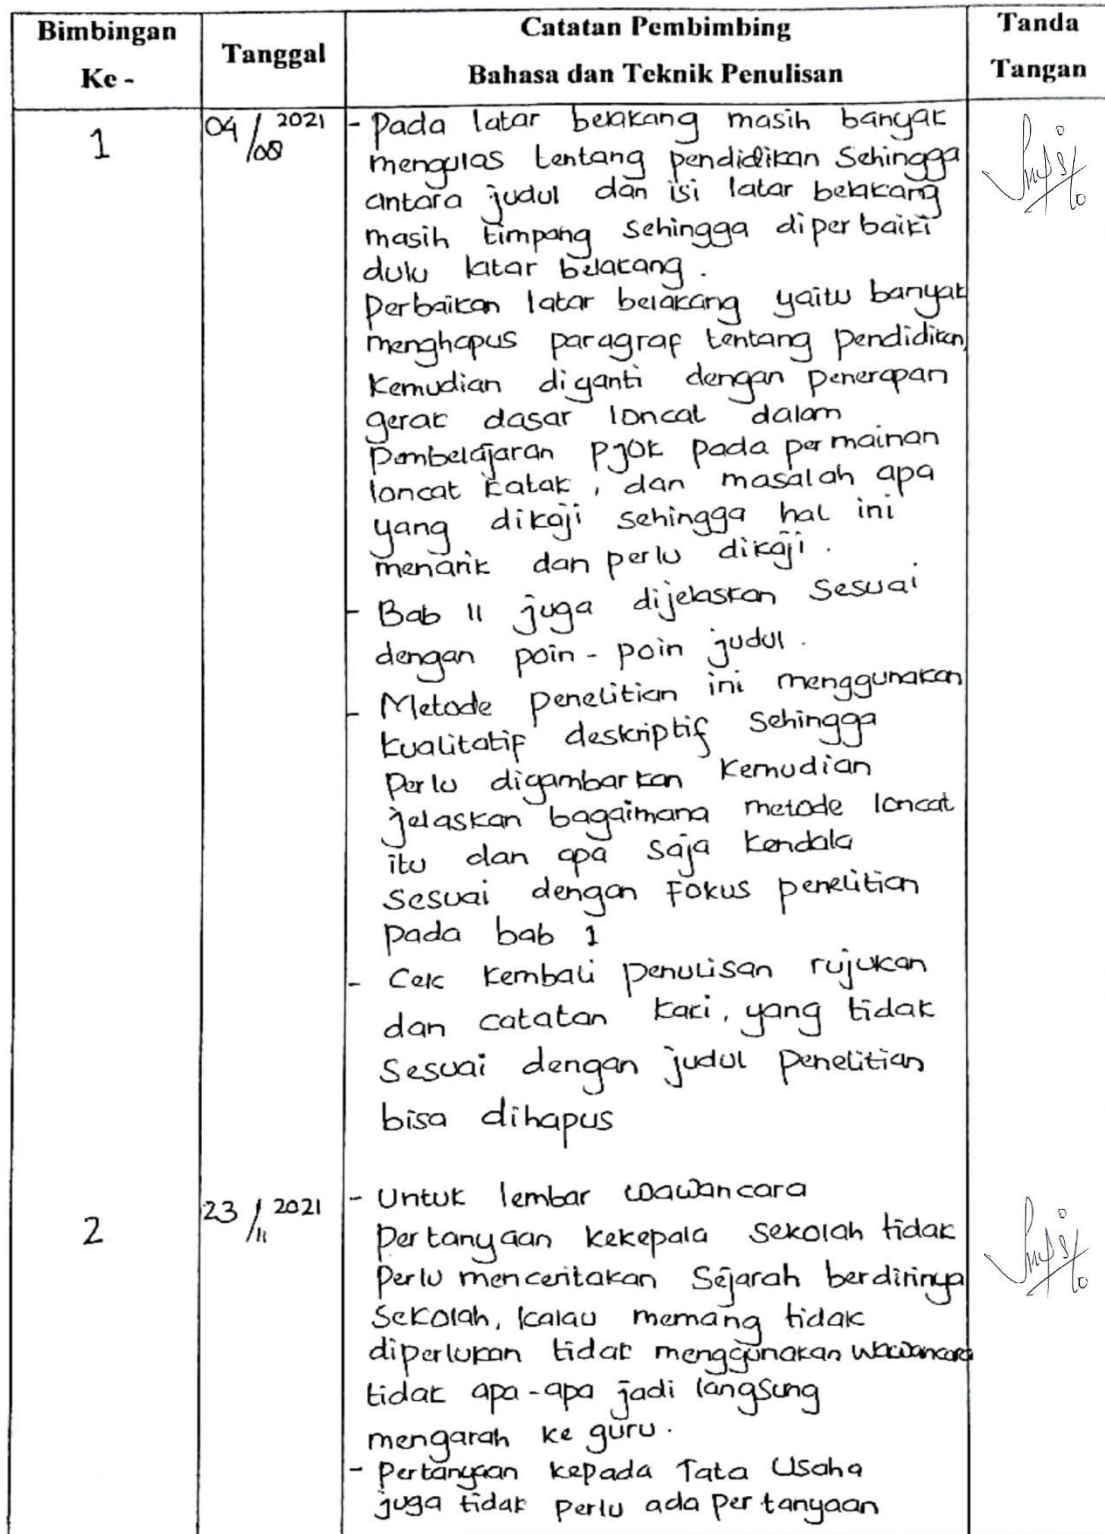 Bimbingan Ke -
Tanggal
Catatan Pembimbing
Bahasa dan Teknik Penulisan
Tanda Tangan
1
04/08 2021
- Pada latar belakang masih banyak
mengulas tentang pendidikan Sehingga
antara judul dan isi latar belakang
masih timpang sehingga diperbaiki
dulu latar belakang.
Perbaikan latar belakang yaitu banyak
menghapus paragraf tentang Pendidikan,
Kemudian diganti dengan penerapan
gerak dasar loncat dalam
Pembelajaran PJOK pada permainan
loncat katak, dan masalah apa
yang dikaji sehingga hal ini
menarik dan perlu dikaji.
- Bab II juga dijelaskan Sesuai
dengan poin-poin judul.
- Metode Penelitian ini menggunakan
kualitatif deskriptif Sehingga
Perlu digambarkan Kemudian
jelaskan bagaimana metode loncat
itu dan apa saja kendala
Sesuai dengan Fokus penelitian
pada bab 1
- Cek Kembali penulisan rujukan
dan catatan kaki, yang tidak
Sesuai dengan judul Penelitian
bisa dihapus
2
23/11 2021
- Untuk lembar wawancara
Pertanyaan kekepala sekolah tidak
Perlu menceritakan Sejarah berdirinya
Sekolah, kalau memang tidak
diperlukan tidak menggunakan wawancara
tidak apa-apa jadi langsung
mengarah ke guru.
- Pertanyaan kepada Tata Usaha
juga tidak perlu ada pertanyaan